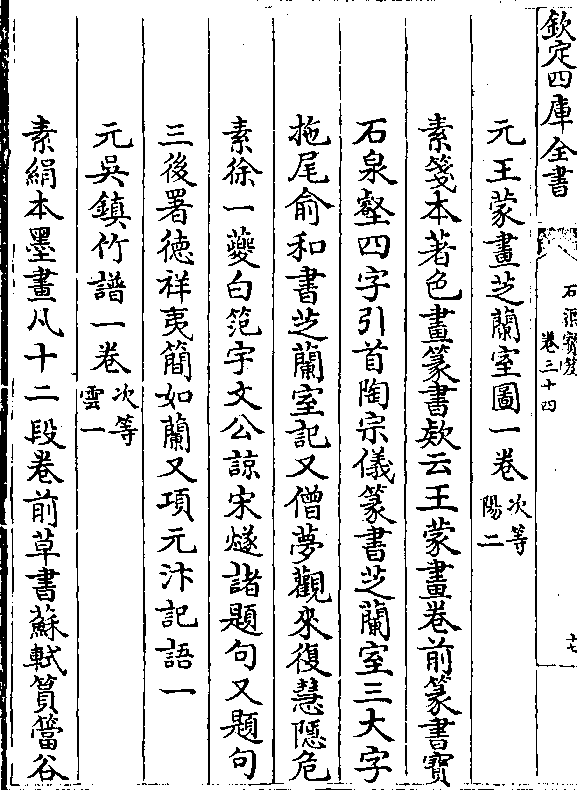 欽定四庫全書
石渠寶笈
卷三十四
十七
元王蒙畫芝蘭室圖一卷
次等
陽二
素箋本著色畫篆書款云王蒙畫卷前篆書寶
石泉壑四字引首陶宗儀篆書芝蘭室三大字
拖尾俞和書芝蘭室記又僧夢觀來復慧隱危
素徐一蘷白范宇文公諒宋燧諸題句又題句
三後署德祥夷簡如蘭又項元汴記語一
元吳鎮竹譜一卷
次等
雲一
素絹本墨畫凡十二段卷前草書蘇軾篔簹谷